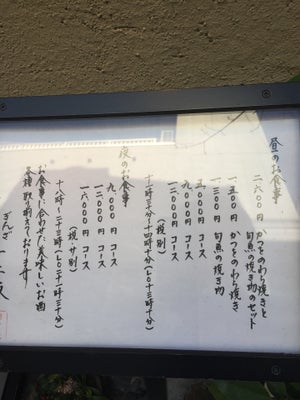 昼のお食事
二六〇〇円 かつをのわら焼きと
旬魚の焼き物のセット
一五〇〇円 かつをのわら焼き
一三〇〇円 旬魚の焼き物
五、〇〇〇円 コース
九、〇〇〇円 コース
一二、〇〇〇円 コース
(税別)
十一時三十分〜十四時三十分(LO十三時三十分)
夜のお食事
九、〇〇〇円 コース
一二、〇〇〇円 コース
一六、〇〇〇円 コース
(税・サ別)
十八時〜二十三時(LO二十一時三十分)
お食事に合せた美味しいお酒
各種取り揃えております
ぎんざ